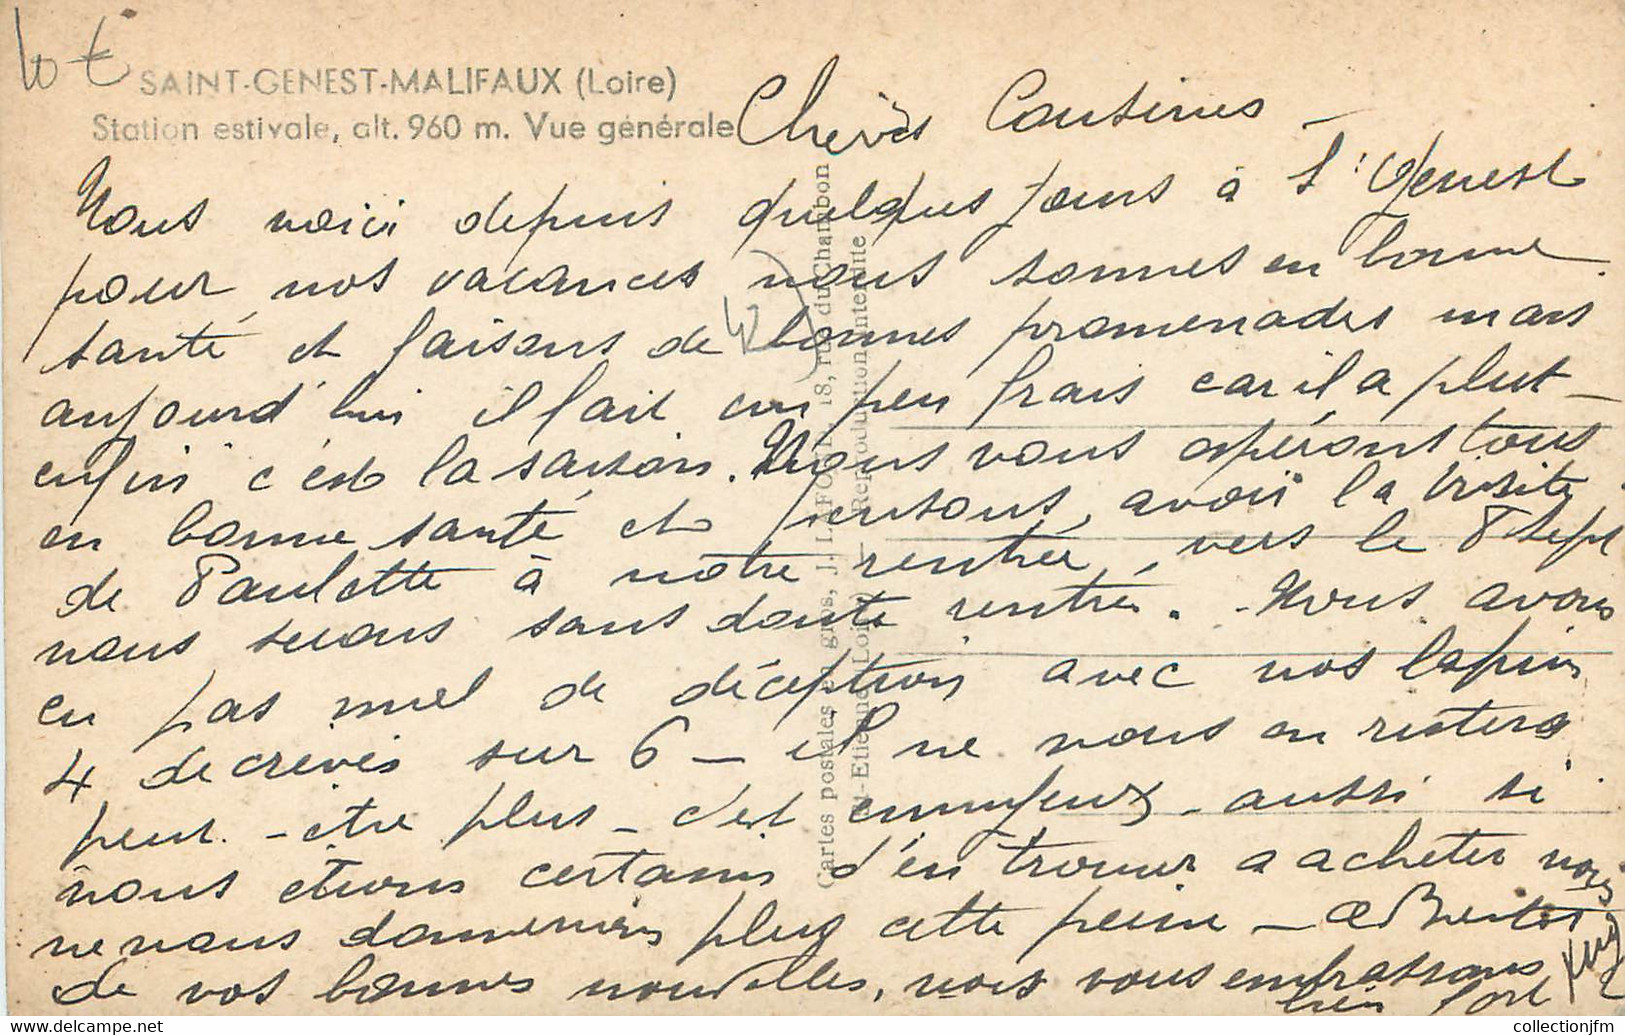 10 €
SAINT-GENEST-MALIFAUX (Loire)
Station estivale, alt. 960 m. Vue générale
Chères Cousines -
Nous voici depuis quelques jours à St Genest
pour nos vacances nous sommes en bonne
santé et faisons de bonnes promenades mais
aujourd'hui il fait un peu frais car il a plut -
enfin c'est la saison. Nous vous espérons tous
en bonne santé et pensons avoir la visite
de Paulette à notre rentrée, vers le 8 Sept
nous serons sans doute rentrés. - Nous avons
eu pas mal de déception avec nos lapins
4 de crevés sur 6 - il ne nous en restera
peut-être plus - c'est ennuyeux - aussi si
nous étions certains d'en trouver a acheter nous
ne nous donnerions plus cette peine - A Bientot
de vos bonnes nouvelles, nous vous embrassons
bien fort
Cartes postales en gros, J. LAFOND, 18, rue du Chambon
St-Etienne (Loire) — Reproduction interdite
collectionjfm